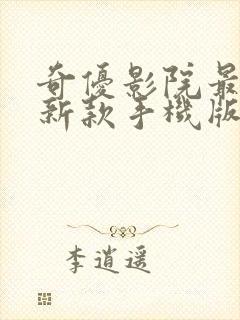 奇優影院最
新款手機版
李逍遥